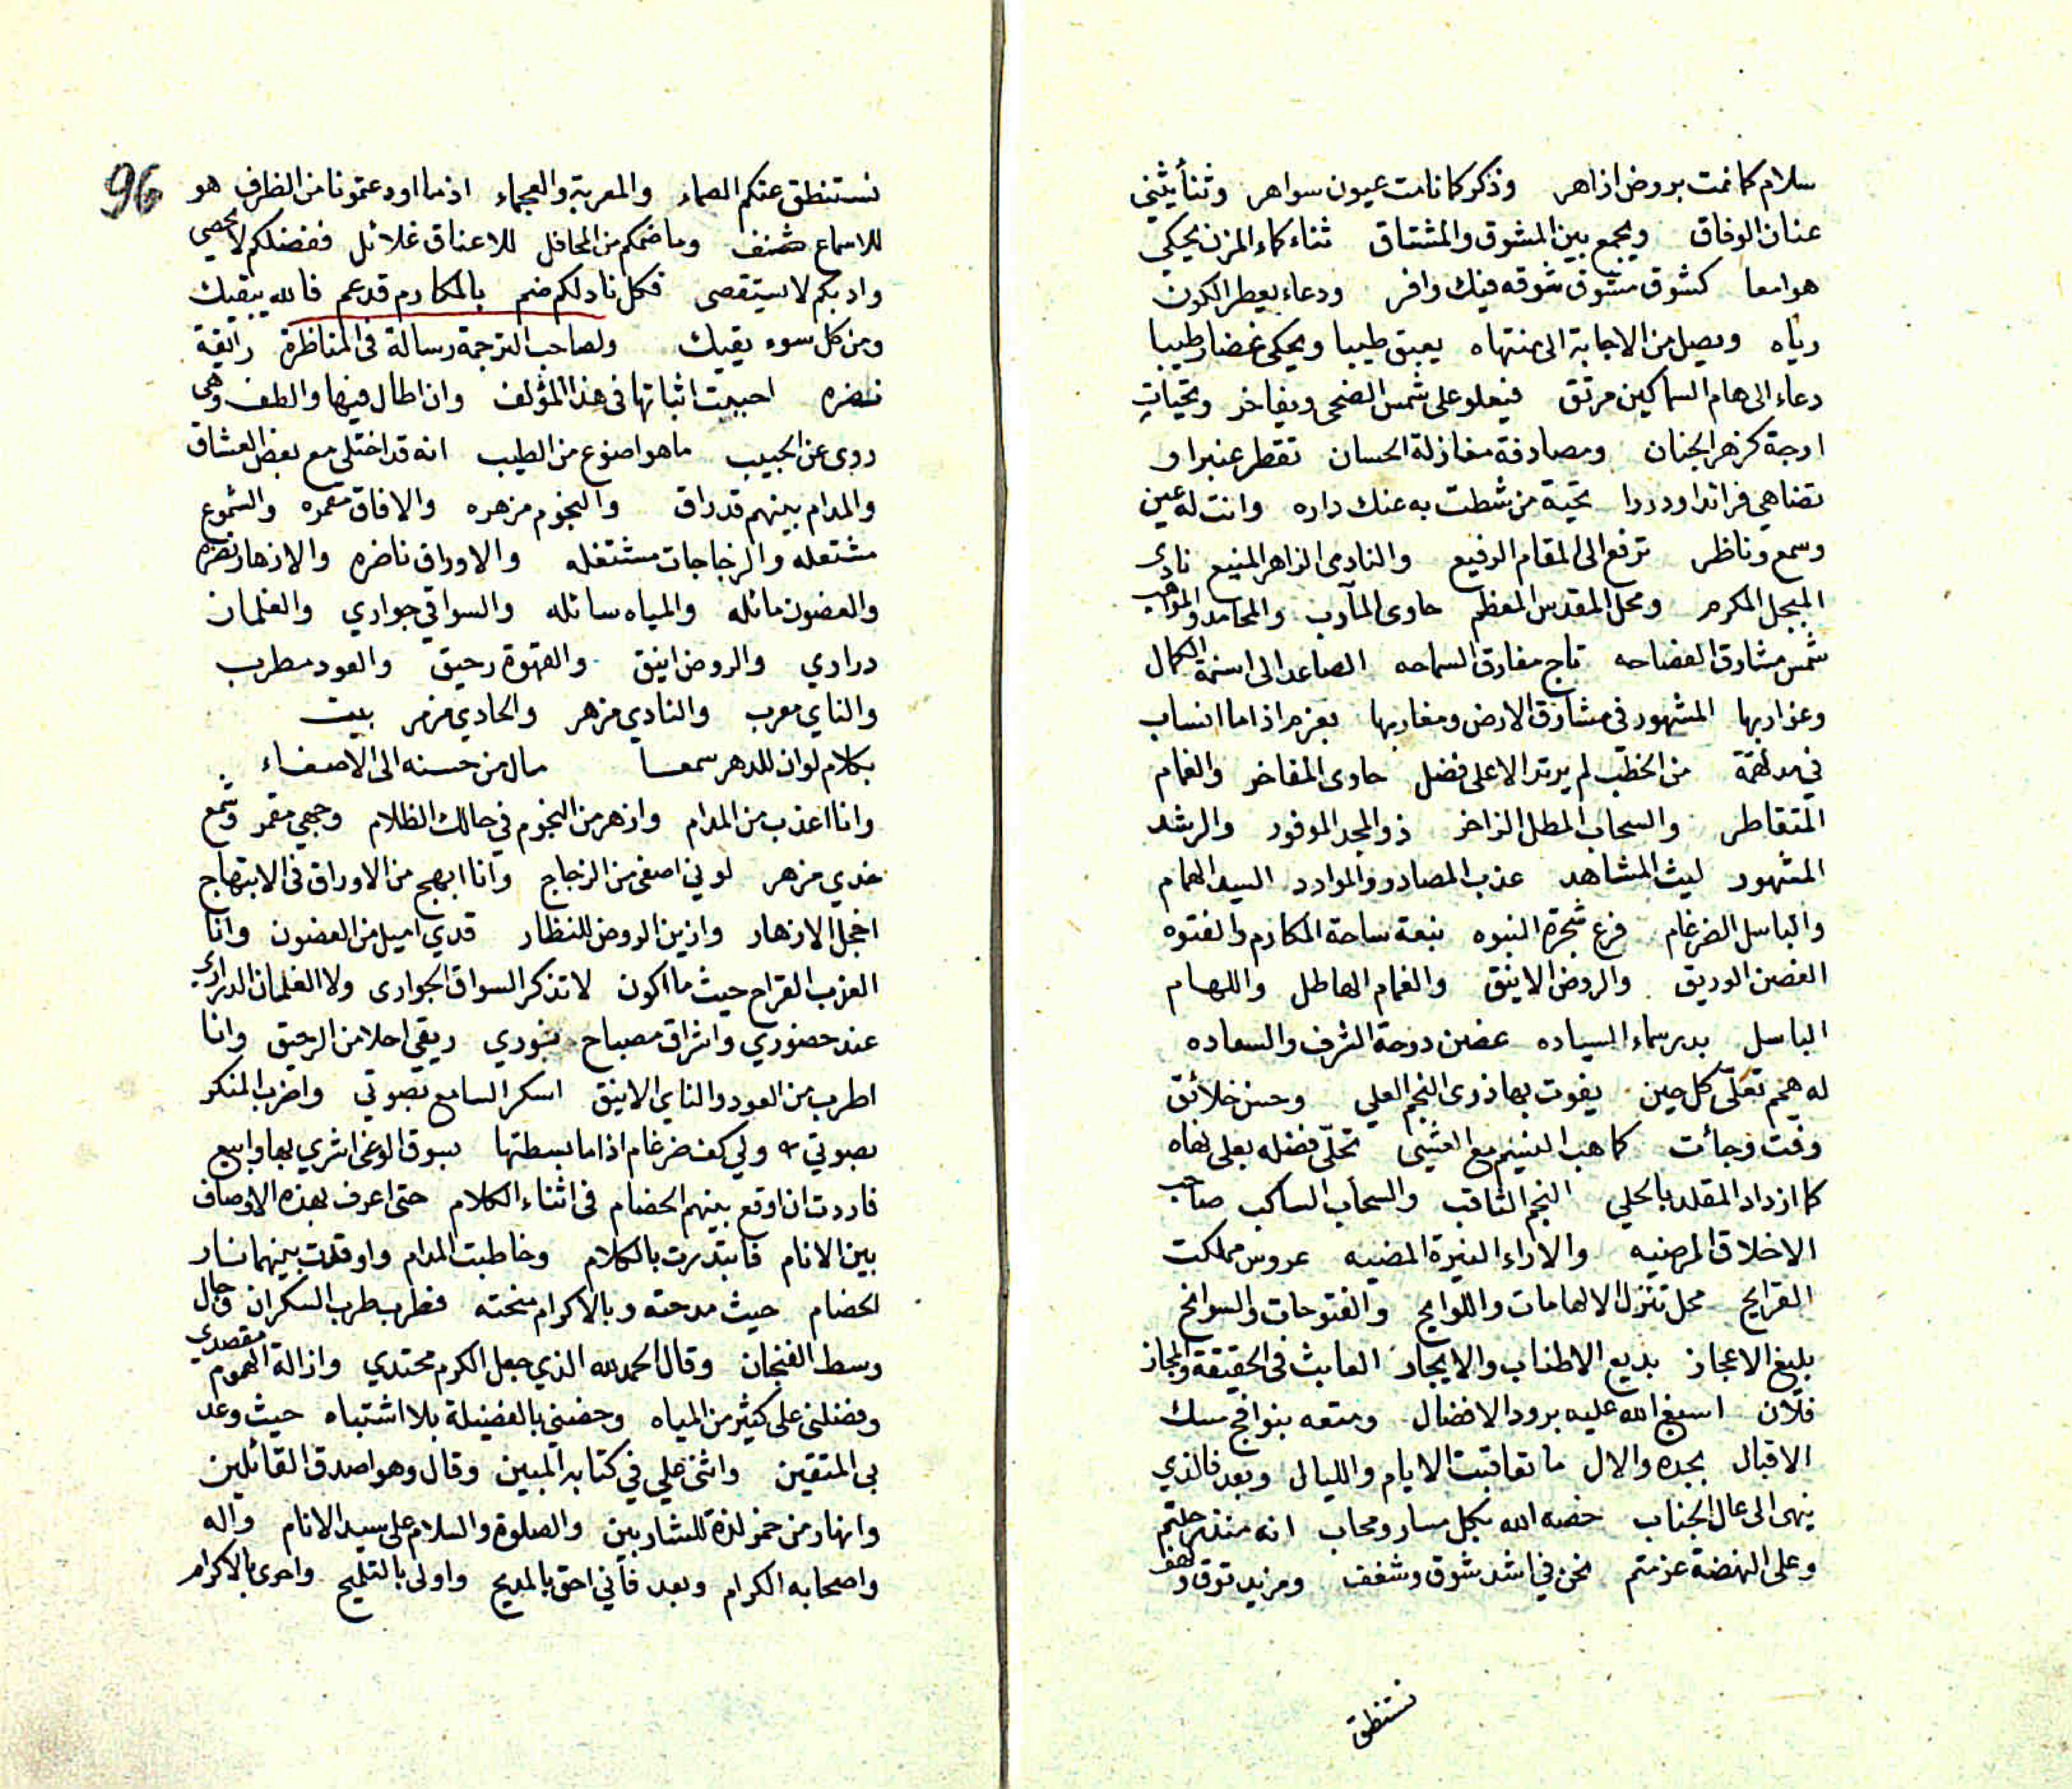 سلام كما نمت بروض ازاهر وذكر كما نامت عيون سواهر وثنأ يثني
عنان الوفاق ويجمع بين المشوق والمشتاق ثناء كماء المزن يحكي
هوامعا كشوق مشوق شوقه فيك وافر ودعاء يعطر الكون
رياه ويصل من الاجابة الى منتهاه يعبق طيبا ويحكي غضا رطيبا
دعاء الى هام السماكين مرتق فيعلو على شمس الضحى ويفاخر وتحيات
ارجة كزهر الجنان ومصادفة مغازلة الحسان تقطر عنبرا و
تضاهي فرائدا ودررا تحية من شطت به عنك داره وانت له عين
وسمع وناظر ترفع الى المقام الرفيع والنادى الزاهر المنيع نادى
المبجل المكرم ومحل المقدس المعظم حاوى المآرب والمحامد والمواهب
شمس مشارق الفصاحه تاج مفارق السماحه الصاعد الى اسنمة الكمال
وغواربها المشهور في مشارق الارض ومغاربها بعزم اذا ما انساب
في مدلهمة من الخطب لم يرتد الا على فضل حاوى المفاخر والغمام
المتقاطر والسحاب المطل الزاخر ذو المجد الموفور والرشد
المشهور ليث المشاهد عذب المصادر والموارد السيد الهمام
والباسل الضرغام فرع شجرة النبوه نبعة ساحة المكارم والفتوه
الغصن الوريق والروض الانيق والغمام الهاطل واللهام
الباسل بدر سماء السياده غصن دوحة الشرف والسعاده
له همم تعلّى كل حين يفوت بها ذرى النجم العلي وحسن خلائق
رقت وجأت كما هب النسيم مع العشي تحلّى فضله بعلى نهاه
كما ازداد المقلد بالحلي النجم الثاقب والسحاب الساكب صاحب
الاخلاق المرضيه والاراء النيرة المضيه عروس مملكت
القرايح محل تنزل الالهامات واللوايح والفتوحات والسوانح
بليغ الاعجاز بديع الاطناب والايجاز العابث في الحقيقة والمجاز
فلان اسبغ الله عليه برود الافضال ومتعه بنوافج مسك
الاقبال بجده والال ما تعاقبت الايام والليال وبعد فالذي
ينهى الى عال الجناب خصه الله بكل مسار ومحاب انه منذ رحلتم
وعلى النهضة عزمتم نحن في اشد شوق وشغف ومزيد توق ولهف
نستنطق
96
نستنطق عنكم الصماء والمعربة والعجماء اذ ما اودعتمونا من الظراف هو
للاسماع شنف وما ضمكم من المحافل للاعناق غلائل ففضلكم لا يحصى
وادبكم لا يستقصى فكل ناد لكم ضم بالمكارم قد عم فالله يبقيك
ومن كل سوء يقيك ولصاحب الترجمة رسالة في المناظرة رائقة
نضره احببت اثباتها في هذا المؤلف وان اطال فيها والطف وهي
روى عن الحبيب ما هو اضوع من الطيب انه قد اختلى مع بعض العشاق
والمدام بينهم قد راق والنجوم مزهره والافاق مقمره والشموع
مشتعله والزجاجات مشتغله والاوراق ناضره والازهار نضره
والغصون مائله والمياه سائله والسواقي جواري والغلمان
دراري والروض انيق والقهوة رحيق والعود مطرب
والناي معرب والنادي مزهر والحادي مزمر بيت
بكلام لو ان للدهر سمعا مال من حسنه الى الاصغاء
وانا اعذب من المدام وازهر من النجوم في حالك الظلام وجهي مقمر وشمع
خدي مزهر لوني اصفى من الزجاج وانا ابهج من الاوراق في الابتهاج
اخجل الازهار وازين الروض للنظار قدي اميل من الغصون وانا
العذب القراح حيث ما اكون لا تذكر السواق الجوارى ولا الغلمان الدرارى
عند حضوري واشراق مصباح نوري ريقي احلا من الرحيق وانا
اطرب من العود والناي الانيق اسكر السامع بصوتي واضرب المنكر
بصوتي ولي كف ضرغام اذا ما بسطتها بسوق الوغى اشري بها وابيع
فاردت ان اوقع بينهم الخصام في اثناء الكلام حتى اعرف بهذه الاوصاف
بين الانام فابتدرت بالكلام وخاطبت المدام واوقدت بينهما نار
الخصام حيث مدحته وبالاكرام منحته فطرب طرب السكران وجال
وسط الفنجان وقال الحمد لله الذي جعل الكرم محتدي وازالة الهموم مقصدي
وفضلني على كثير من المياه وخصني بالفضيلة بلا اشتباه حيث وعد
بي المتقين واثنى علي في كتابه المبين وقال وهو اصدق القائلين
وانهار من خمر لذة للشاربين والصلوة والسلام على سيد الانام واله
واصحابه الكرام وبعد فأني احق بالمديح واولى بالتلميح واحرى بالاكرام